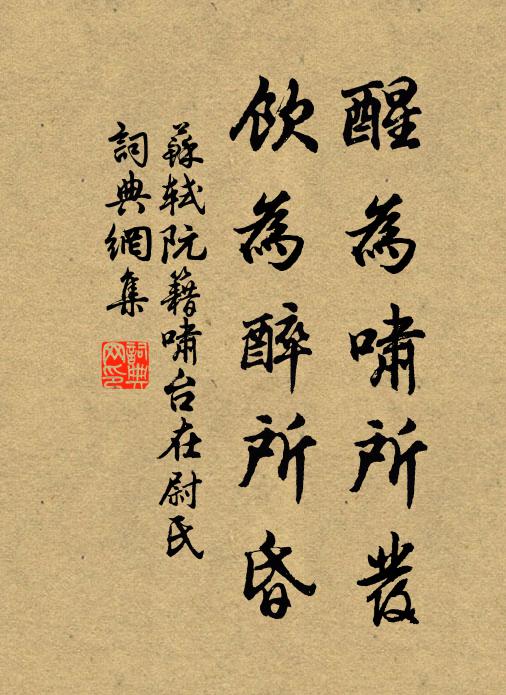 醒為嘯所發
飲為醉所昏
蘇軾阮籍嘯台在尉氏
詞典網集
詞典网印